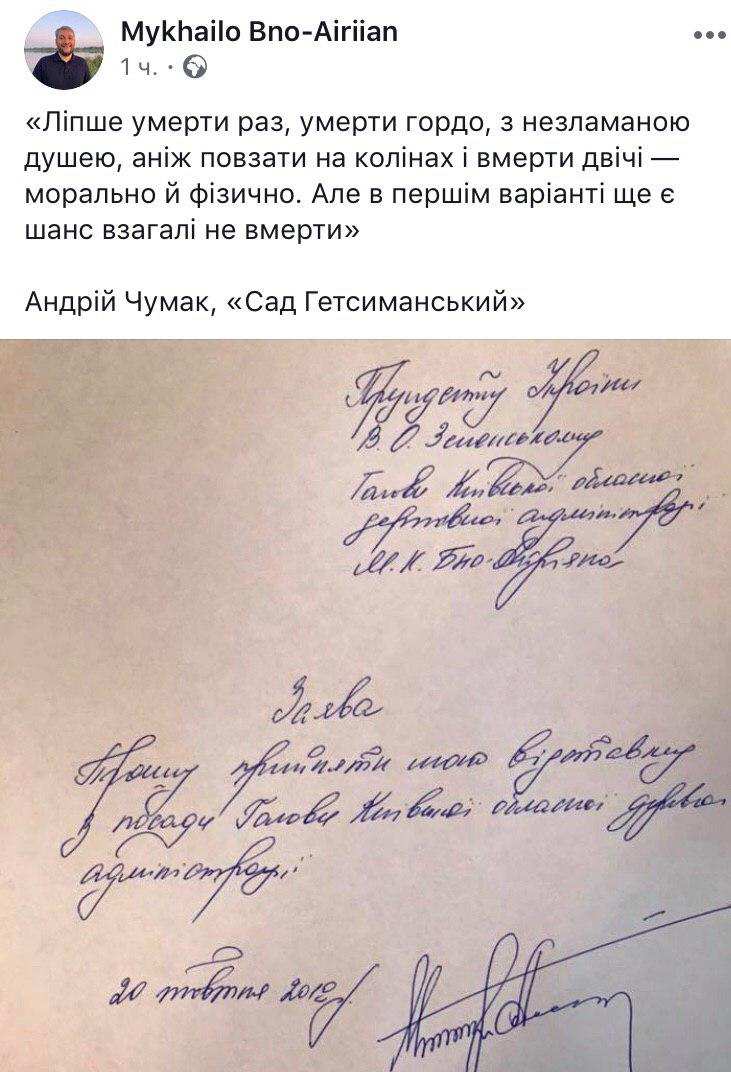 Mykhailo Bno-Airiian
1 ч. ·
«Ліпше умерти раз, умерти гордо, з незламаною
душею, аніж повзати на колінах і вмерти двічі —
морально й фізично. Але в першім варіанті ще є
шанс взагалі не вмерти»
Андрій Чумак, «Сад Гетсиманський»
Президенту України
В. О. Зеленському
Голови Київської обласної
державної адміністрації
М. К. Бно-Айріяна
Заява
Прошу прийняти мою відставку
з посади Голови Київської обласної державної
адміністрації
20 жовтня